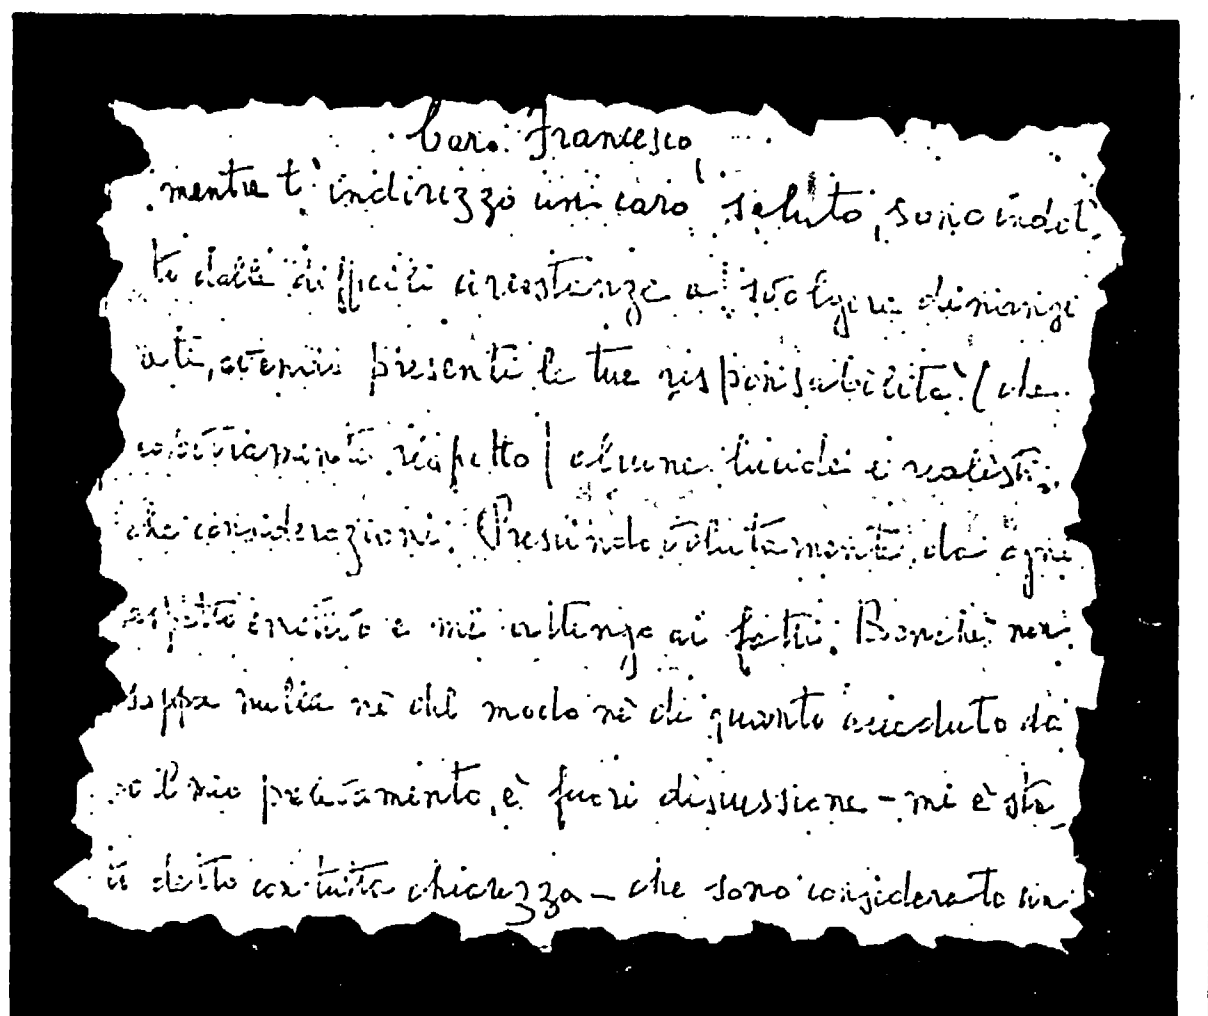 Caro Francesco,
mentre t'indirizzo un caro saluto, sono indot-
to dalle difficili circostanze a svolgere dinanzi
a te, avendo presenti le tue responsabilità (che
ovviamente rispetto) alcune lucide e realisti-
che considerazioni. Prescindo volutamente da ogni
aspetto emotivo e mi attengo ai fatti. Benché non
sappia nulla né del modo né di quanto accaduto do
po il mio prelevamento, è fuori discussione - mi è sta
to detto con tutta chiarezza - che sono considerato un